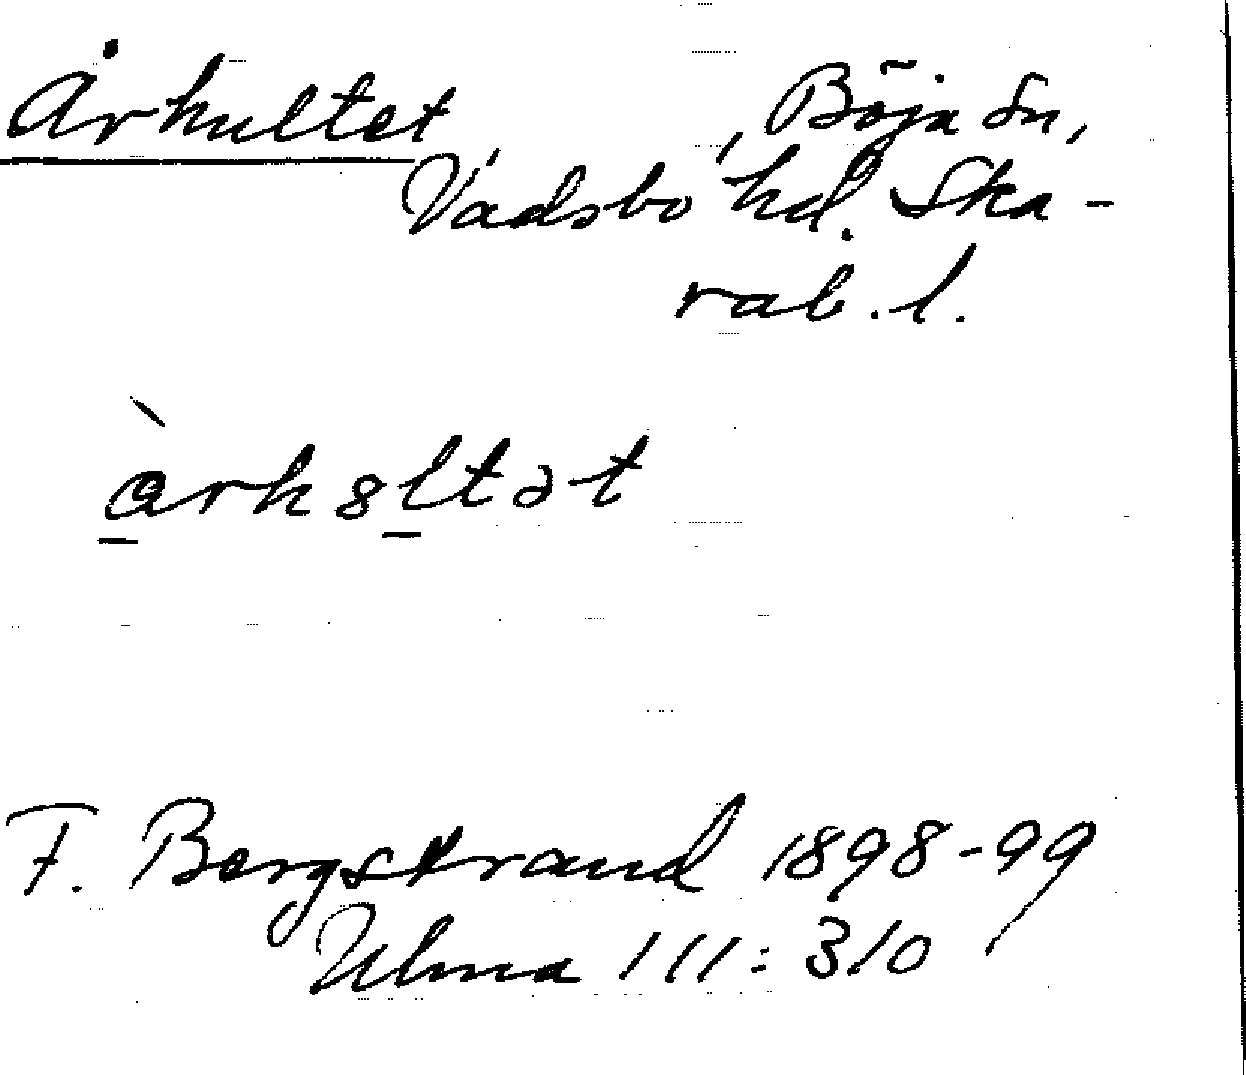 Århultet, Böja sn,
Vadsbo hd. Ska-
rab. l.
F. Bergstrand 1898-99
Ulma 111:310